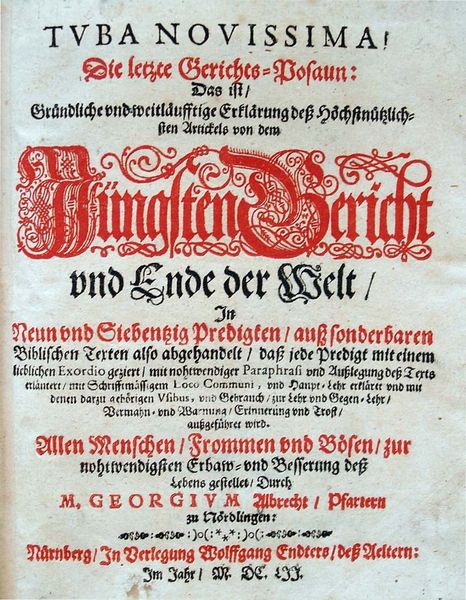 TVBA NOVISSIMA!
Die letzte Gerichts-Posaun:
Das ist/
Gründliche vnd weitläufftige Erklärung deß Höchstnützlich-
sten Artickels von dem
Jüngsten Gericht
vnd Ende der Welt/
In
Neun vnd Siebentzig Predigten/ auß sonderbaren
Biblischen Texten also abgehandelt/ daß jede Predigt mit einem
lieblichen Exordio geziert/ mit nohtwendiger Paraphrasi vnd Außlegung deß Texts
erläutert/ mit Schrifftmässigem Loco Communi, vnd Haupt-Lehr erkläret vnd mit
denen darzu gehörigen Vsibus, vnd Gebrauch/ zur Lehr vnd Gegen-Lehr/
Vermahn- vnd Warnung/ Erinnerung vnd Trost/
außgeführet wird.
Allen Menschen/ Frommen vnd Bösen/ zur
nohtwendigsten Erbaw- vnd Besserung deß
Lebens gestellet/ Durch
M. GEORGIVM Albrecht/ Pfarrern
zu Nördlingen:
Nürnberg/ In Verlegung Wolffgang Endters/ deß Aeltern:
Im Jahr/ M. DC. LII.